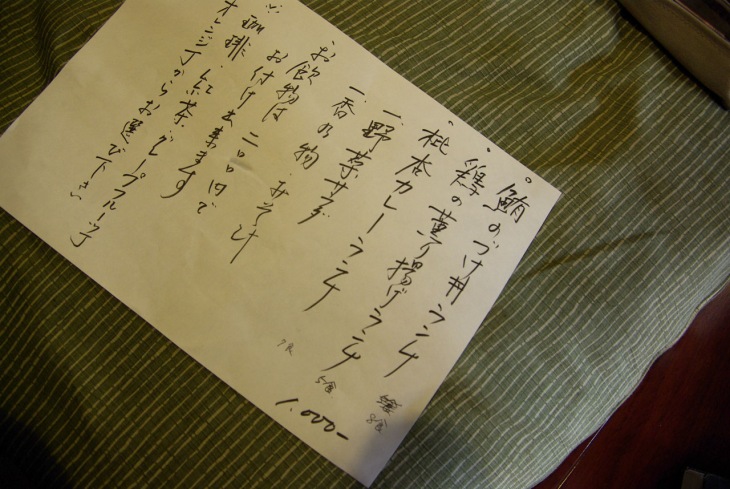 ・鮪のづけ丼ランチ
・鶏の薫り揚げランチ
・枇杏カレーランチ
一、野菜サラダ
一、香の物・みそ汁
お飲物は二〇〇円で
お付け出来ます
※珈琲・紅茶・グレープフルーツ
オレンジJからお選び下さい
8食
5食
7食
1.000-